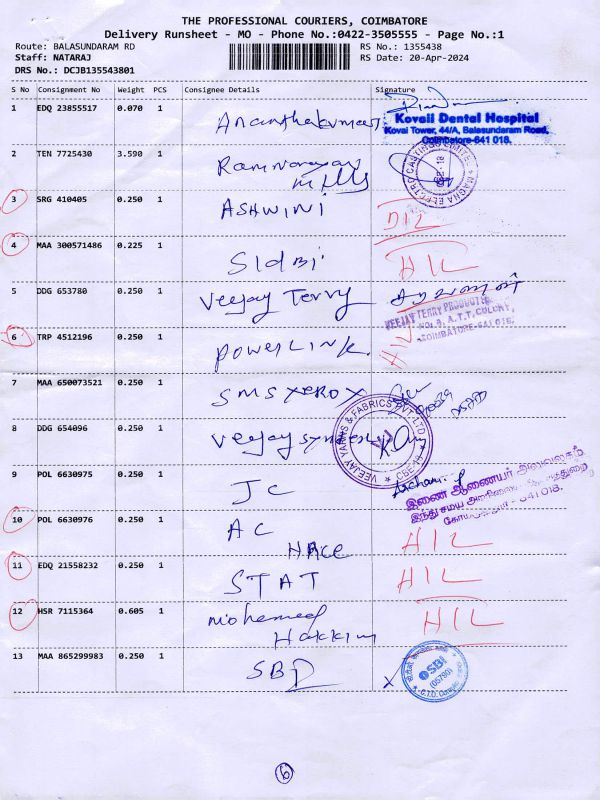 THE PROFESSIONAL COURIERS, COIMBATORE
Delivery Runsheet - MO - Phone No.:0422-3505555 - Page No.:1
Route: BALASUNDARAM RD
RS No.: 1355438
Staff: NATARAJ
RS Date: 20-Apr-2024
DRS No.: DCJB135543801
S No Consignment No Weight PCS Consignee Details Signature
1 EDQ 23855517 0.070 1 Ananthakumar
Kovaii Dental Hospital
Kovai Tower, 44/A, Balasundaram Road,
Coimbatore-641 018.
2 TEN 7725430 3.590 1 Ramnarayan
Mills
3 SRG 410405 0.250 1 ASHWINI DIL
4 MAA 300571486 0.225 1 SIdBi HIL
5 DDG 653780 0.250 1 Veejay Terry சரவணன்
VEEJAY TERRY PRODUCTS
NO. 9, A.T.T. COLONY,
COIMBATORE-641 018.
6 TRP 4512196 0.250 1 Powerlink HIL
7 MAA 650073521 0.250 1 SMS XEROX
8 DDG 654096 0.250 1 Veejay
VEEJAY YARNS & FABRICS PVT. LTD
CBE
9 POL 6630975 0.250 1 JC
இணை ஆணையர் அலுவலகம்
இந்து சமய
641 018.
10 POL 6630976 0.250 1 AC HIL
HACE
11 EDQ 21558232 0.250 1 STAT HIL
12 HSR 7115364 0.605 1 Mohemed HIL
Hakkim
13 MAA 865299983 0.250 1 SBI X
SBI
(05790)
6